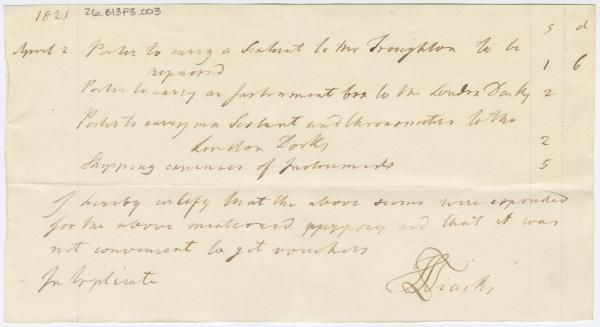 1821 26_B13F3_003
s d
April 2 Porter to carry a Sextant to Mr Troughton to be
repaired 1 6
Porter to carry an Instrument box to the London Docks 2
Porter to carry my Sextant and chronometer to the
London Docks 2
Shipping expenses of Instruments 5
I hereby certify that the above sums were expended
for the above mentioned purposes and that it was
not convenient to get vouchers
In triplicate
Tiarks